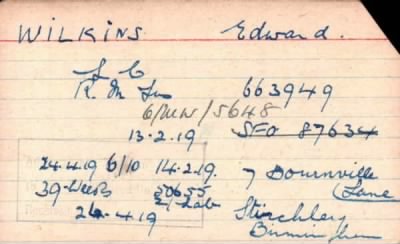 WILKINS Edward.
L C
R. M. 663949
6/MW/5648
13.2.19 SFO 87634
24.4.19 6/10 14.2.19. 7 Bournville
39-Weeks 50655 Lane
24.4.19 Stirchley
Birmingham